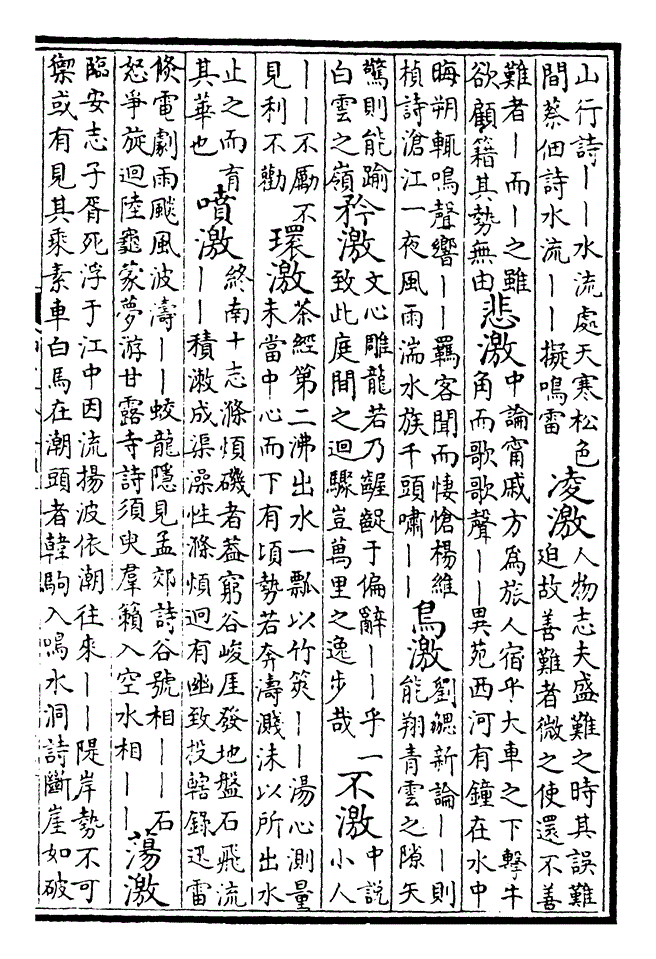 山行詩丨丨水流處天寒松色
間蔡佃詩水流丨丨擬鳴雷
凌激
人物志夫盛難之時其誤難
迫故善難者微之使還不善
難者丨而丨之雖
欲顧籍其勢無由
悲激
中論甯戚方為旅人宿乎大車之下擊牛
角而歌歌聲丨丨異苑西河有鐘在水中
晦朔輒鳴聲響丨丨羈客聞而悽愴楊維
楨詩滄江一夜風雨湍水族千頭嘯丨丨
鳥激
劉勰新論丨丨則
能翔青雲之隙矢
驚則能踰
白雲之嶺
矜激
文心雕龍若乃齷齪于偏辭丨丨乎一
致此庭間之迴驟豈萬里之逸步哉
不激
中說
小人
丨丨不勵不
見利不勸
環激
茶經第二沸出水一瓢以竹筴丨丨湯心測量
末當中心而下有頃勢若奔濤濺沫以所出水
止之而育
其華也
噴激
終南十志滌煩磯者葢窮谷峻厓發地盤石飛流
丨丨積漱成渠澡性滌煩迥有幽致投轄錄迅雷
倐電劇雨飈風波濤丨丨蛟龍隱見孟郊詩谷號相丨丨石
怒爭旋迴陸龜蒙夢游甘露寺詩須臾羣籟入空水相丨丨
蕩激
臨安志子胥死浮于江中因流揚波依潮往來丨丨隄岸勢不可
禦或有見其乘素車白馬在潮頭者韓駒入鳴水洞詩斷崖如破